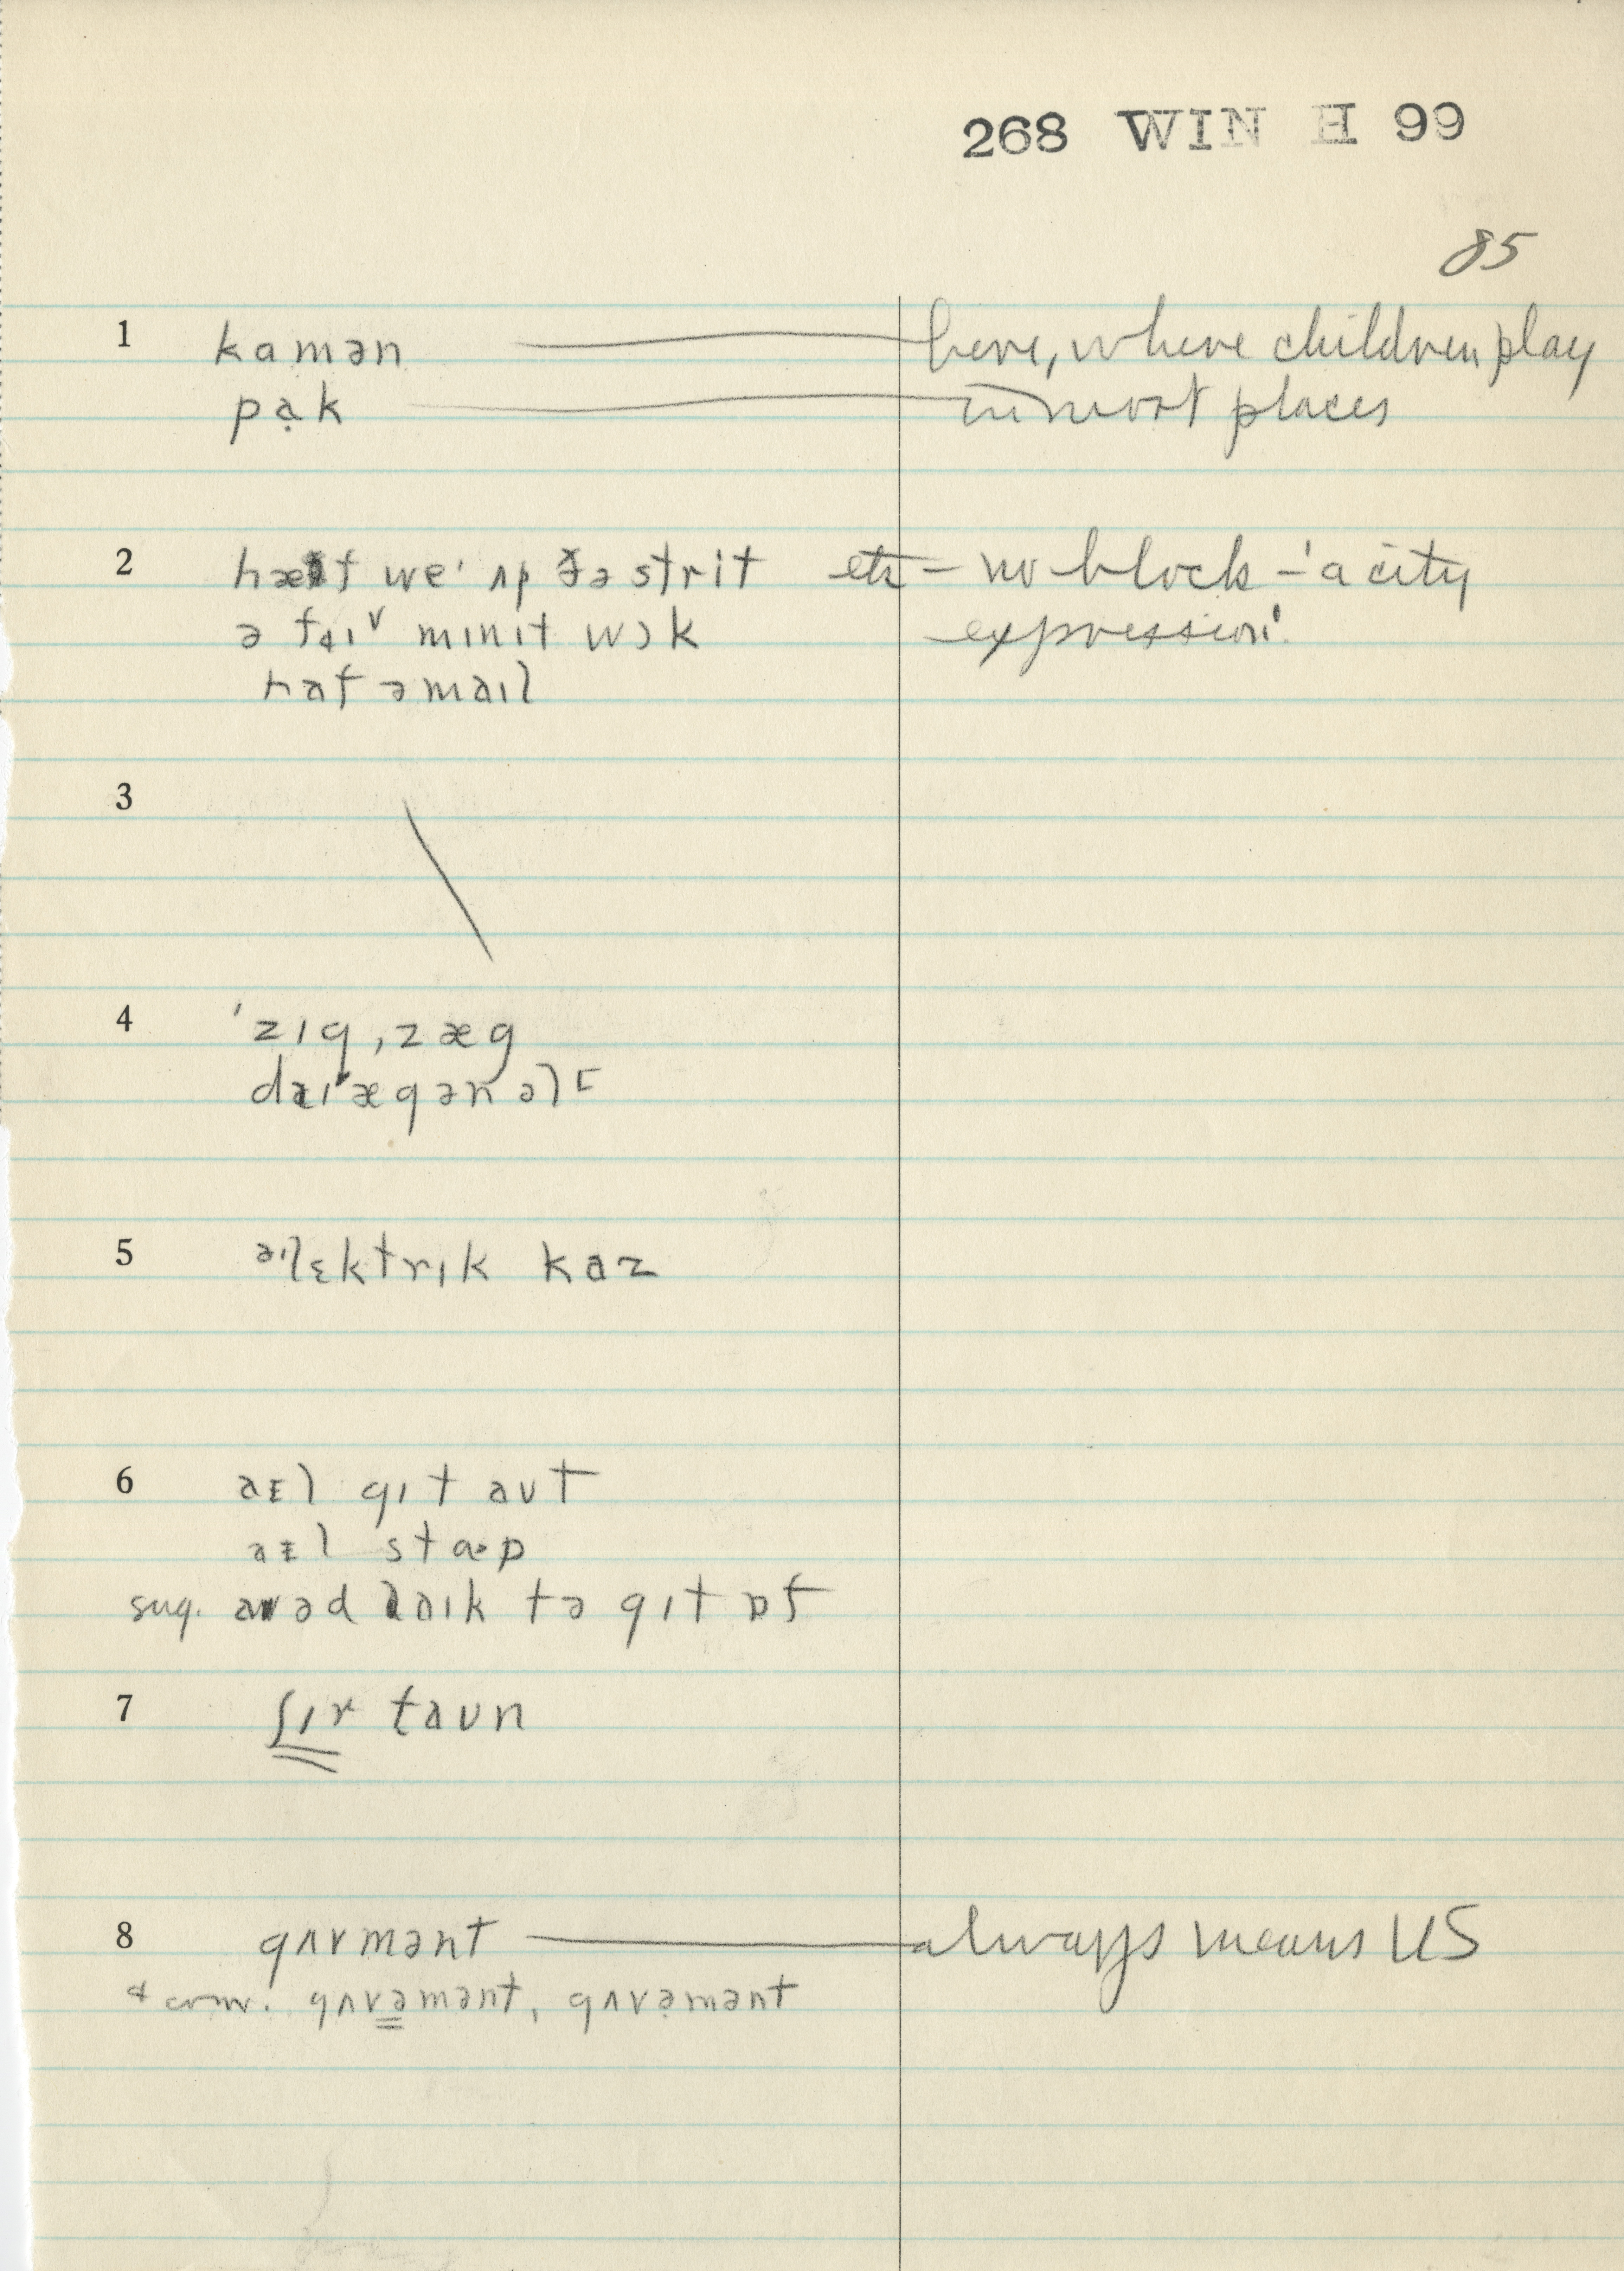 268 WIN H 99
85
1 kamən — here, where children play
pạk — in most places
2 hæf weˈ ʌp ðə strit etc – no block – 'a city
ə faɪv mɪnɪt wɔk expression'.
haf ə maɪl
3
4 ˈzɪg ˌzæg
daɪˈægənəl
5 əˈlɛktrɪk kaz
6 aɪl gɪt aʊt
aɪl stɑp
sug. aɪəd laɪk tə gɪt ɒf
7 ʃɪr taʊn
8 gʌvmənt — always means US
& conv. gʌvəmənt, gʌvəmənt